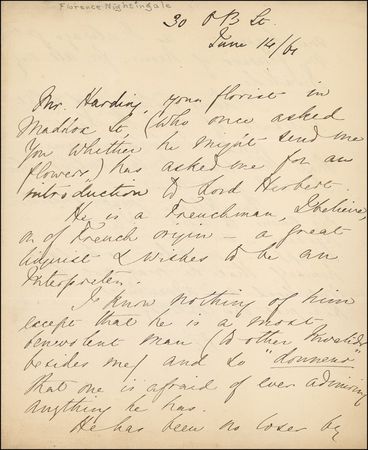 Florence Nightingale
30 O B St.
June 14/61
Mr. Harding, your florist in
Maddox St, (who once asked
you whether he might send me
flowers,) has asked me for an
introduction to Lord Herbert.
He is a Frenchman, I believe,
or of French origin - a great
linguist & wishes to be an
Interpreter.
I know nothing of him
except that he is a most
benevolent man (to other Invalids
besides me) and so "donneur"
that one is afraid of ever admiring
anything he has.
He has been no loser by